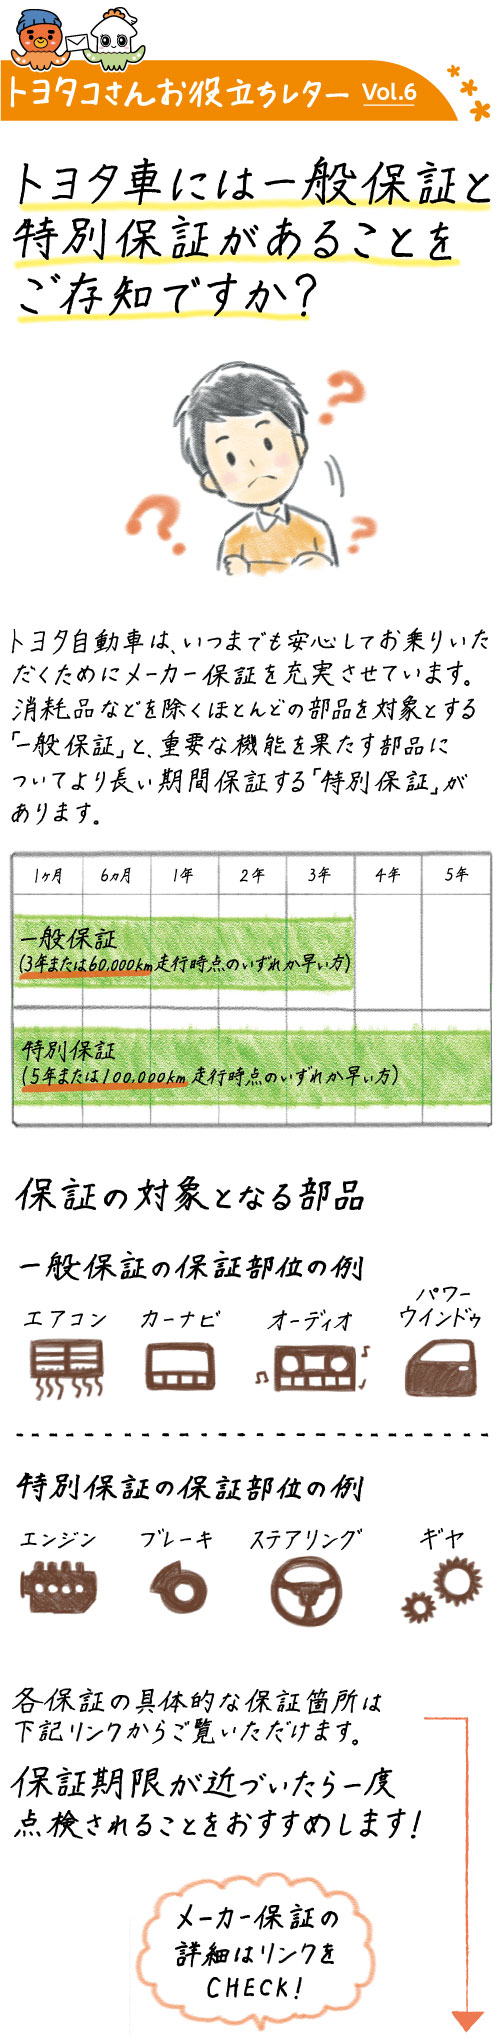 トヨタコさんお役立ちレター Vol.6
トヨタ車には一般保証と
特別保証があることを
ご存知ですか?
トヨタ自動車は、いつまでも安心してお乗りいた
だくためにメーカー保証を充実させています。
消耗品などを除くほとんどの部品を対象とする
「一般保証」と、重要な機能を果たす部品に
ついてより長い期間保証する「特別保証」が
あります。
1ヶ月 6ヵ月 1年 2年 3年 4年 5年
一般保証
(3年または60,000km走行時点のいずれか早い方)
特別保証
(5年または100,000km走行時点のいずれか早い方)
保証の対象となる部品
一般保証の保証部位の例
エアコン カーナビ オーディオ パワー
ウインドゥ
特別保証の保証部位の例
エンジン ブレーキ ステアリング ギヤ
各保証の具体的な保証箇所は
下記リンクからご覧いただけます。
保証期限が近づいたら一度
点検されることをおすすめします!
メーカー保証の
詳細はリンクを
CHECK!